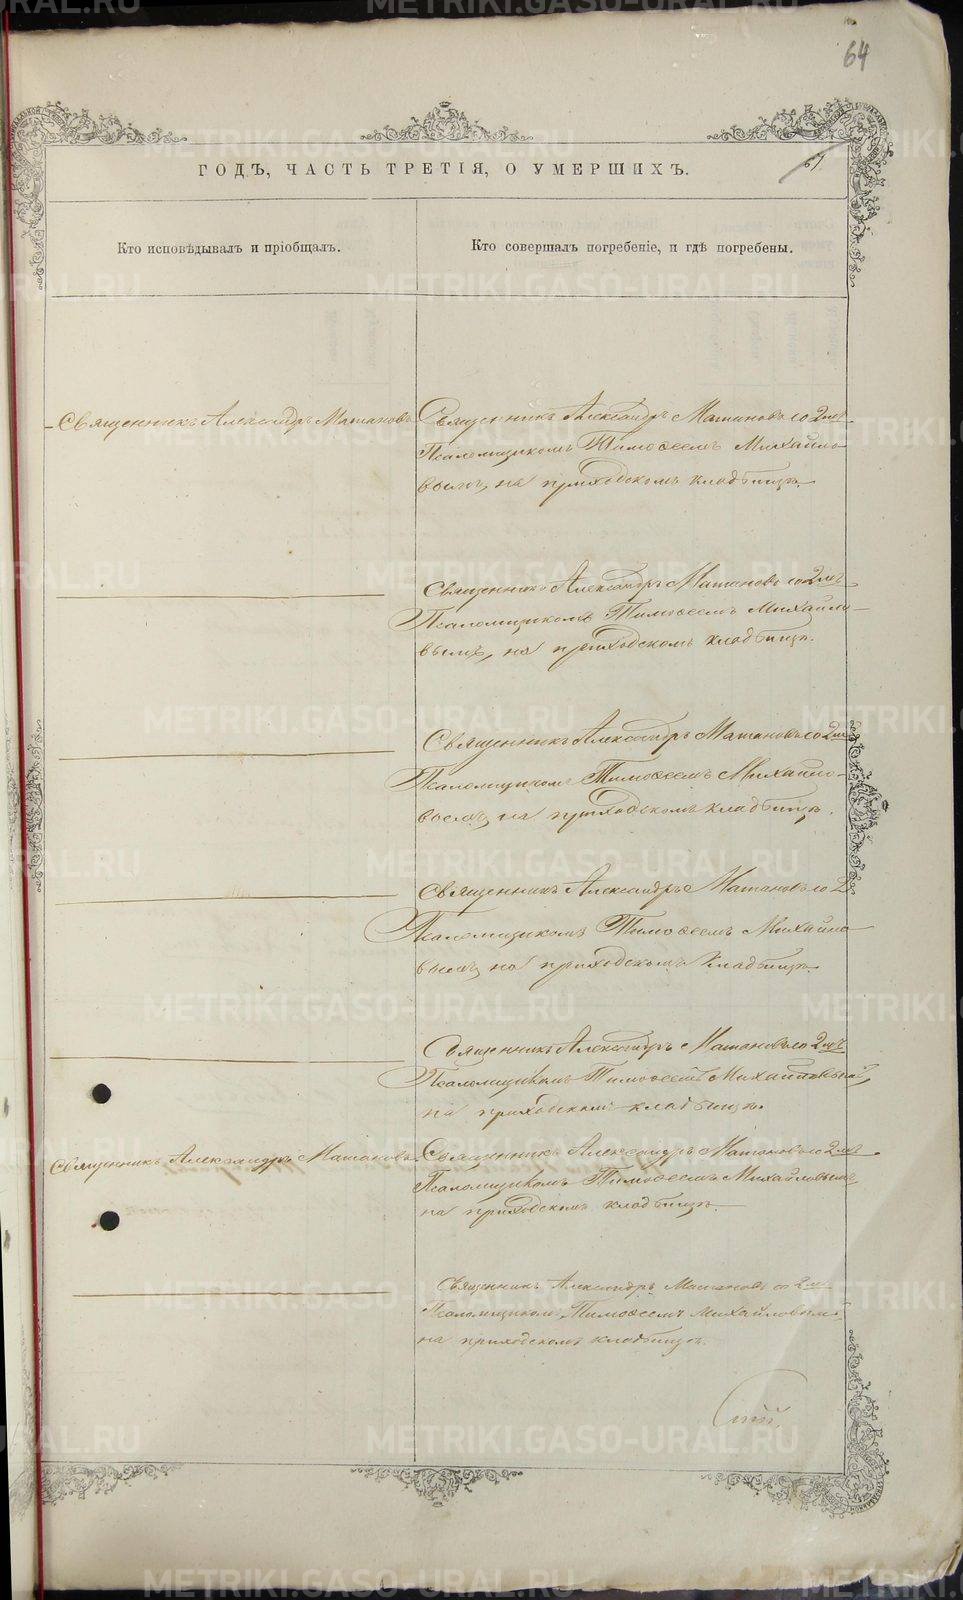 64
57.
ГОДЪ, ЧАСТЬ ТРЕТІЯ, О УМЕРШИХЪ.
Кто исповѣдывалъ и пріобщалъ.
Кто совершалъ погребеніе, и гдѣ погребены.
Священникъ Александръ Матановъ
Священникъ Александръ Матановъ со 2мъ
Псаломщикомъ Тимоѳеемъ Михайло-
вымъ, на приходскомъ кладбищѣ.
Священникъ Александръ Матановъ со 2мъ
Псаломщикомъ Тимоѳеемъ Михайло-
вымъ, на приходскомъ кладбищѣ.
Священникъ Александръ Матановъ со 2мъ
Псаломщикомъ Тимоѳеемъ Михайло-
вымъ, на приходскомъ кладбищѣ.
Священникъ Александръ Матановъ со 2
Псаломщикомъ Тимоѳеемъ Михайло
вымъ, на приходскомъ кладбищѣ
Священникъ Александръ Матановъ со 2мъ
Псаломщикомъ Тимоѳеемъ Михайловымъ,
на приходскомъ кладбищѣ.
Священникъ Александръ Матановъ
Священникъ Александръ Матановъ со 2мъ
Псаломщикомъ Тимоѳеемъ Михайловымъ
на приходскомъ кладбищѣ.
Священникъ Александръ Матановъ со 2мъ
Псаломщикомъ Тимоѳеемъ Михайловымъ
на приходскомъ кладбищѣ.
METRIKI.GASO-URAL.RU